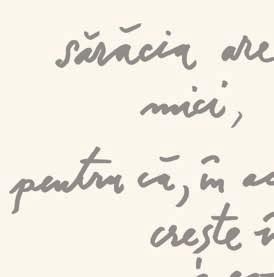 sărăcia are
mici,
pentru că, în
crește